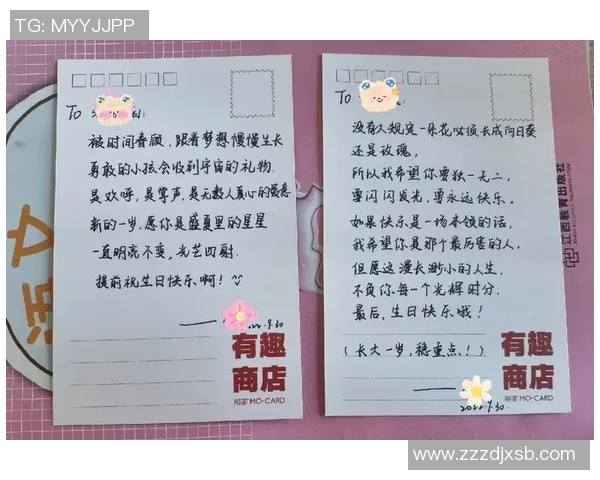 TG: MYYJJPP
To
被时间眷顾，跟着梦想慢慢生长
勇敢的小孩会收到宇宙的礼物.
是欢呼，是掌声，是无数人真心的爱意
新的一岁，愿你是盛夏里的星星
一直明亮不变，光芒四射.
提前祝生日快乐啊！
2022.9.30
有趣
商店
MO·CARD
To
没有人规定一朵花必须长成向日葵
还是玫瑰，
所以我希望你要独一无二，
要闪闪发光，要永远快乐。
如果快乐是一场本领的话，
我希望你是那个最厉害的人，
但愿这漫长渺小的人生，
不负你每一个光辉时分.
最后，生日快乐哦！
（长大一岁，稳重点！）
2022.9.30.
有趣
商店
MO·CARD
江西教育出版社
语文
www.zzzdjxsb.com